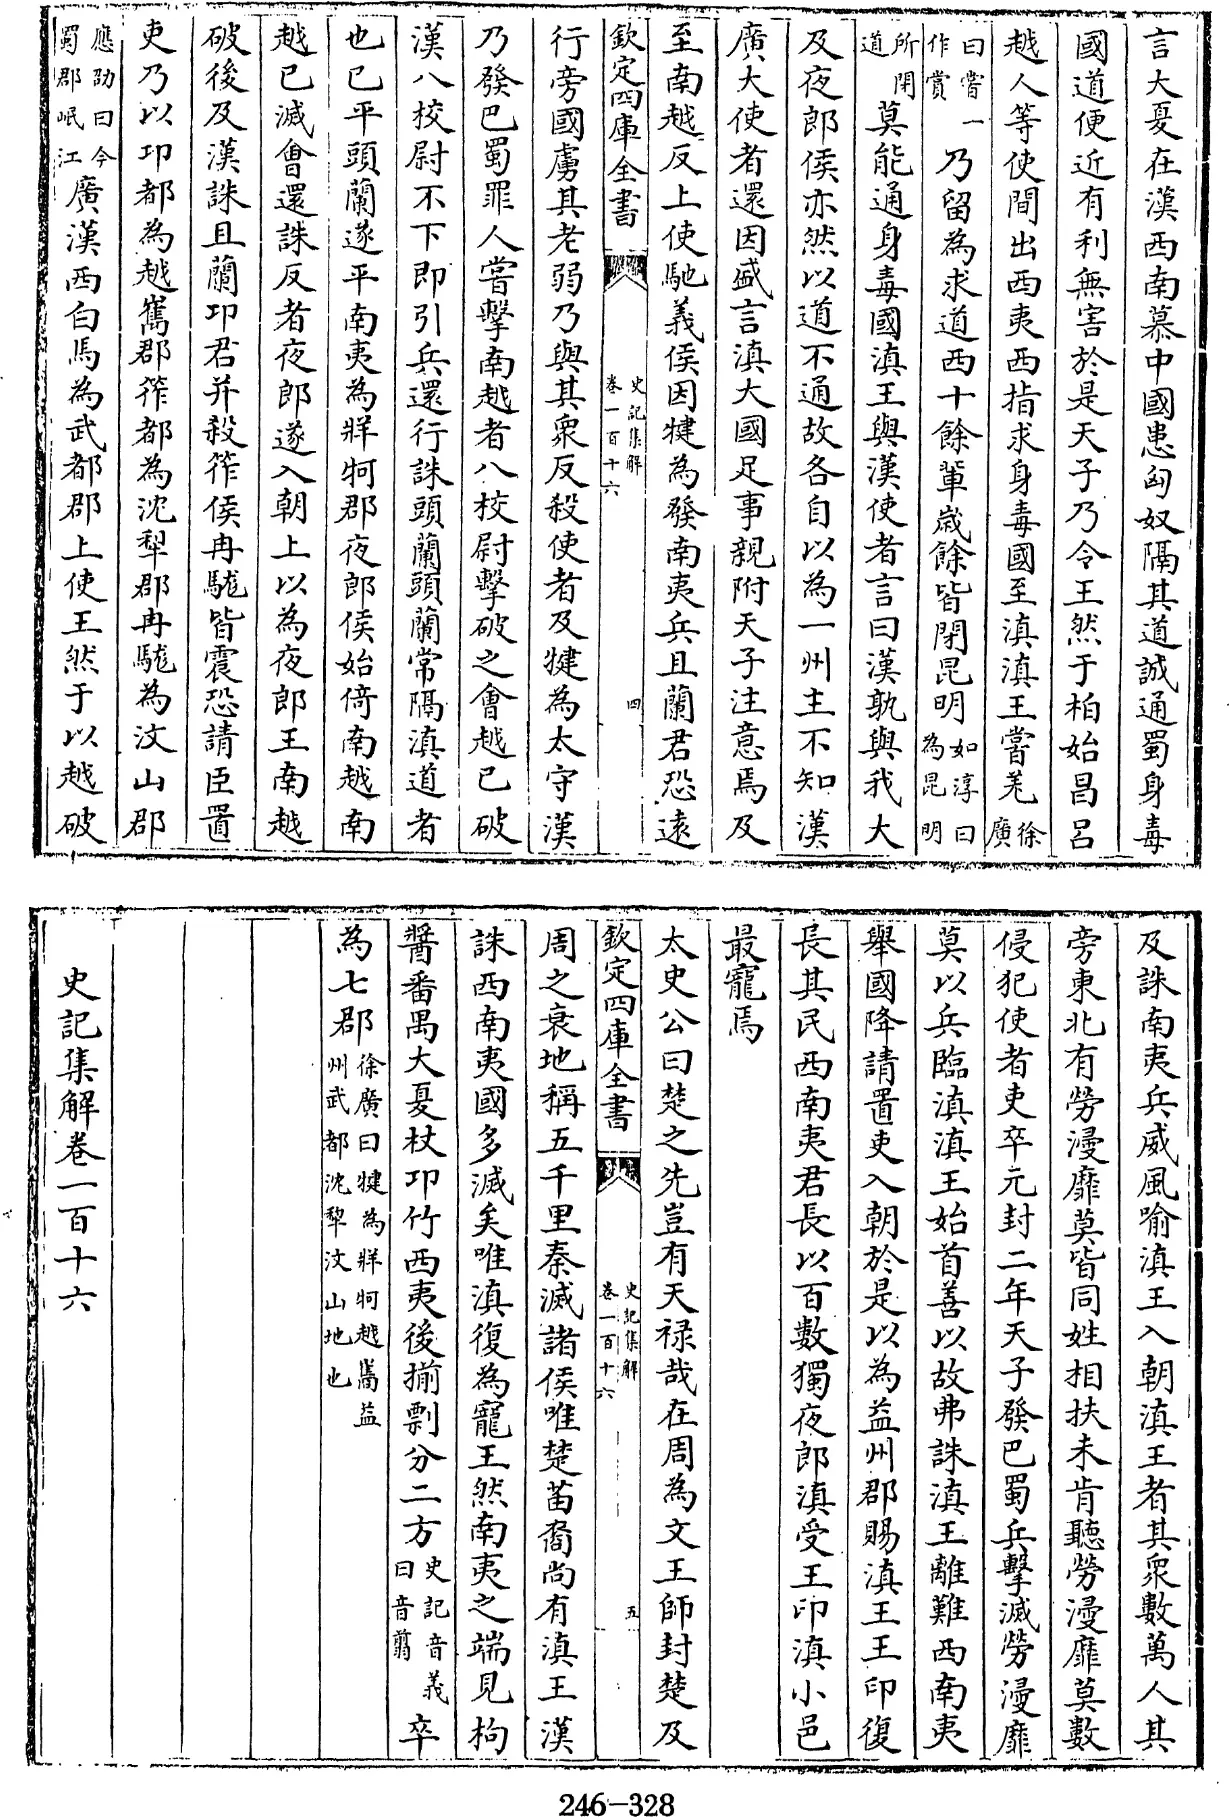 言大夏在漢西南慕中國患匈奴隔其道誠通蜀身毒
國道便近有利無害於是天子乃令王然于柏始昌呂
越人等使間出西夷西指求身毒國至滇滇王嘗羌徐廣
曰嘗一作賞乃留為求道西十餘輩歲餘皆閉昆明如淳曰為昆明
所閉道莫能通身毒國滇王與漢使者言曰漢孰與我大
及夜郎侯亦然以道不通故各自以為一州主不知漢
廣大使者還因盛言滇大國足事親附天子注意焉及
至南越反上使馳義侯因犍為發南夷兵且蘭君恐遠
欽定四庫全書 史記集解 卷一百十六 四
行旁國虜其老弱乃與其衆反殺使者及犍為太守漢
乃發巴蜀罪人嘗擊南越者八校尉擊破之會越已破
漢八校尉不下即引兵還行誅頭蘭頭蘭常隔滇道者
也已平頭蘭遂平南夷為牂牁郡夜郎侯始倚南越南
越已滅會還誅反者夜郎遂入朝上以為夜郎王南越
破後及漢誅且蘭卭君并殺筰侯冉駹皆震恐請臣置
吏乃以卭都為越嶲郡筰都為沈犁郡冉駹為汶山郡
應劭曰今蜀郡岷江廣漢西白馬為武都郡上使王然于以越破
及誅南夷兵威風喻滇王入朝滇王者其衆數萬人其
旁東北有勞漫靡莫皆同姓相扶未肯聽勞漫靡莫數
侵犯使者吏卒元封二年天子發巴蜀兵擊滅勞漫靡
莫以兵臨滇滇王始首善以故弗誅滇王離難西南夷
舉國降請置吏入朝於是以為益州郡賜滇王王印復
長其民西南夷君長以百數獨夜郎滇受王印滇小邑
最寵焉
太史公曰楚之先豈有天禄哉在周為文王師封楚及
欽定四庫全書 史記集解 卷一百十六 五
周之衰地稱五千里秦滅諸侯唯楚苗裔尚有滇王漢
誅西南夷國多滅矣唯滇復為寵王然南夷之端見枸
醬番禺大夏杖卭竹西夷後揃剽分二方史記音義曰音翦卒
為七郡徐廣曰犍為牂牁越嶲益州武都沈犂汶山地也
史記集解卷一百十六
246-328